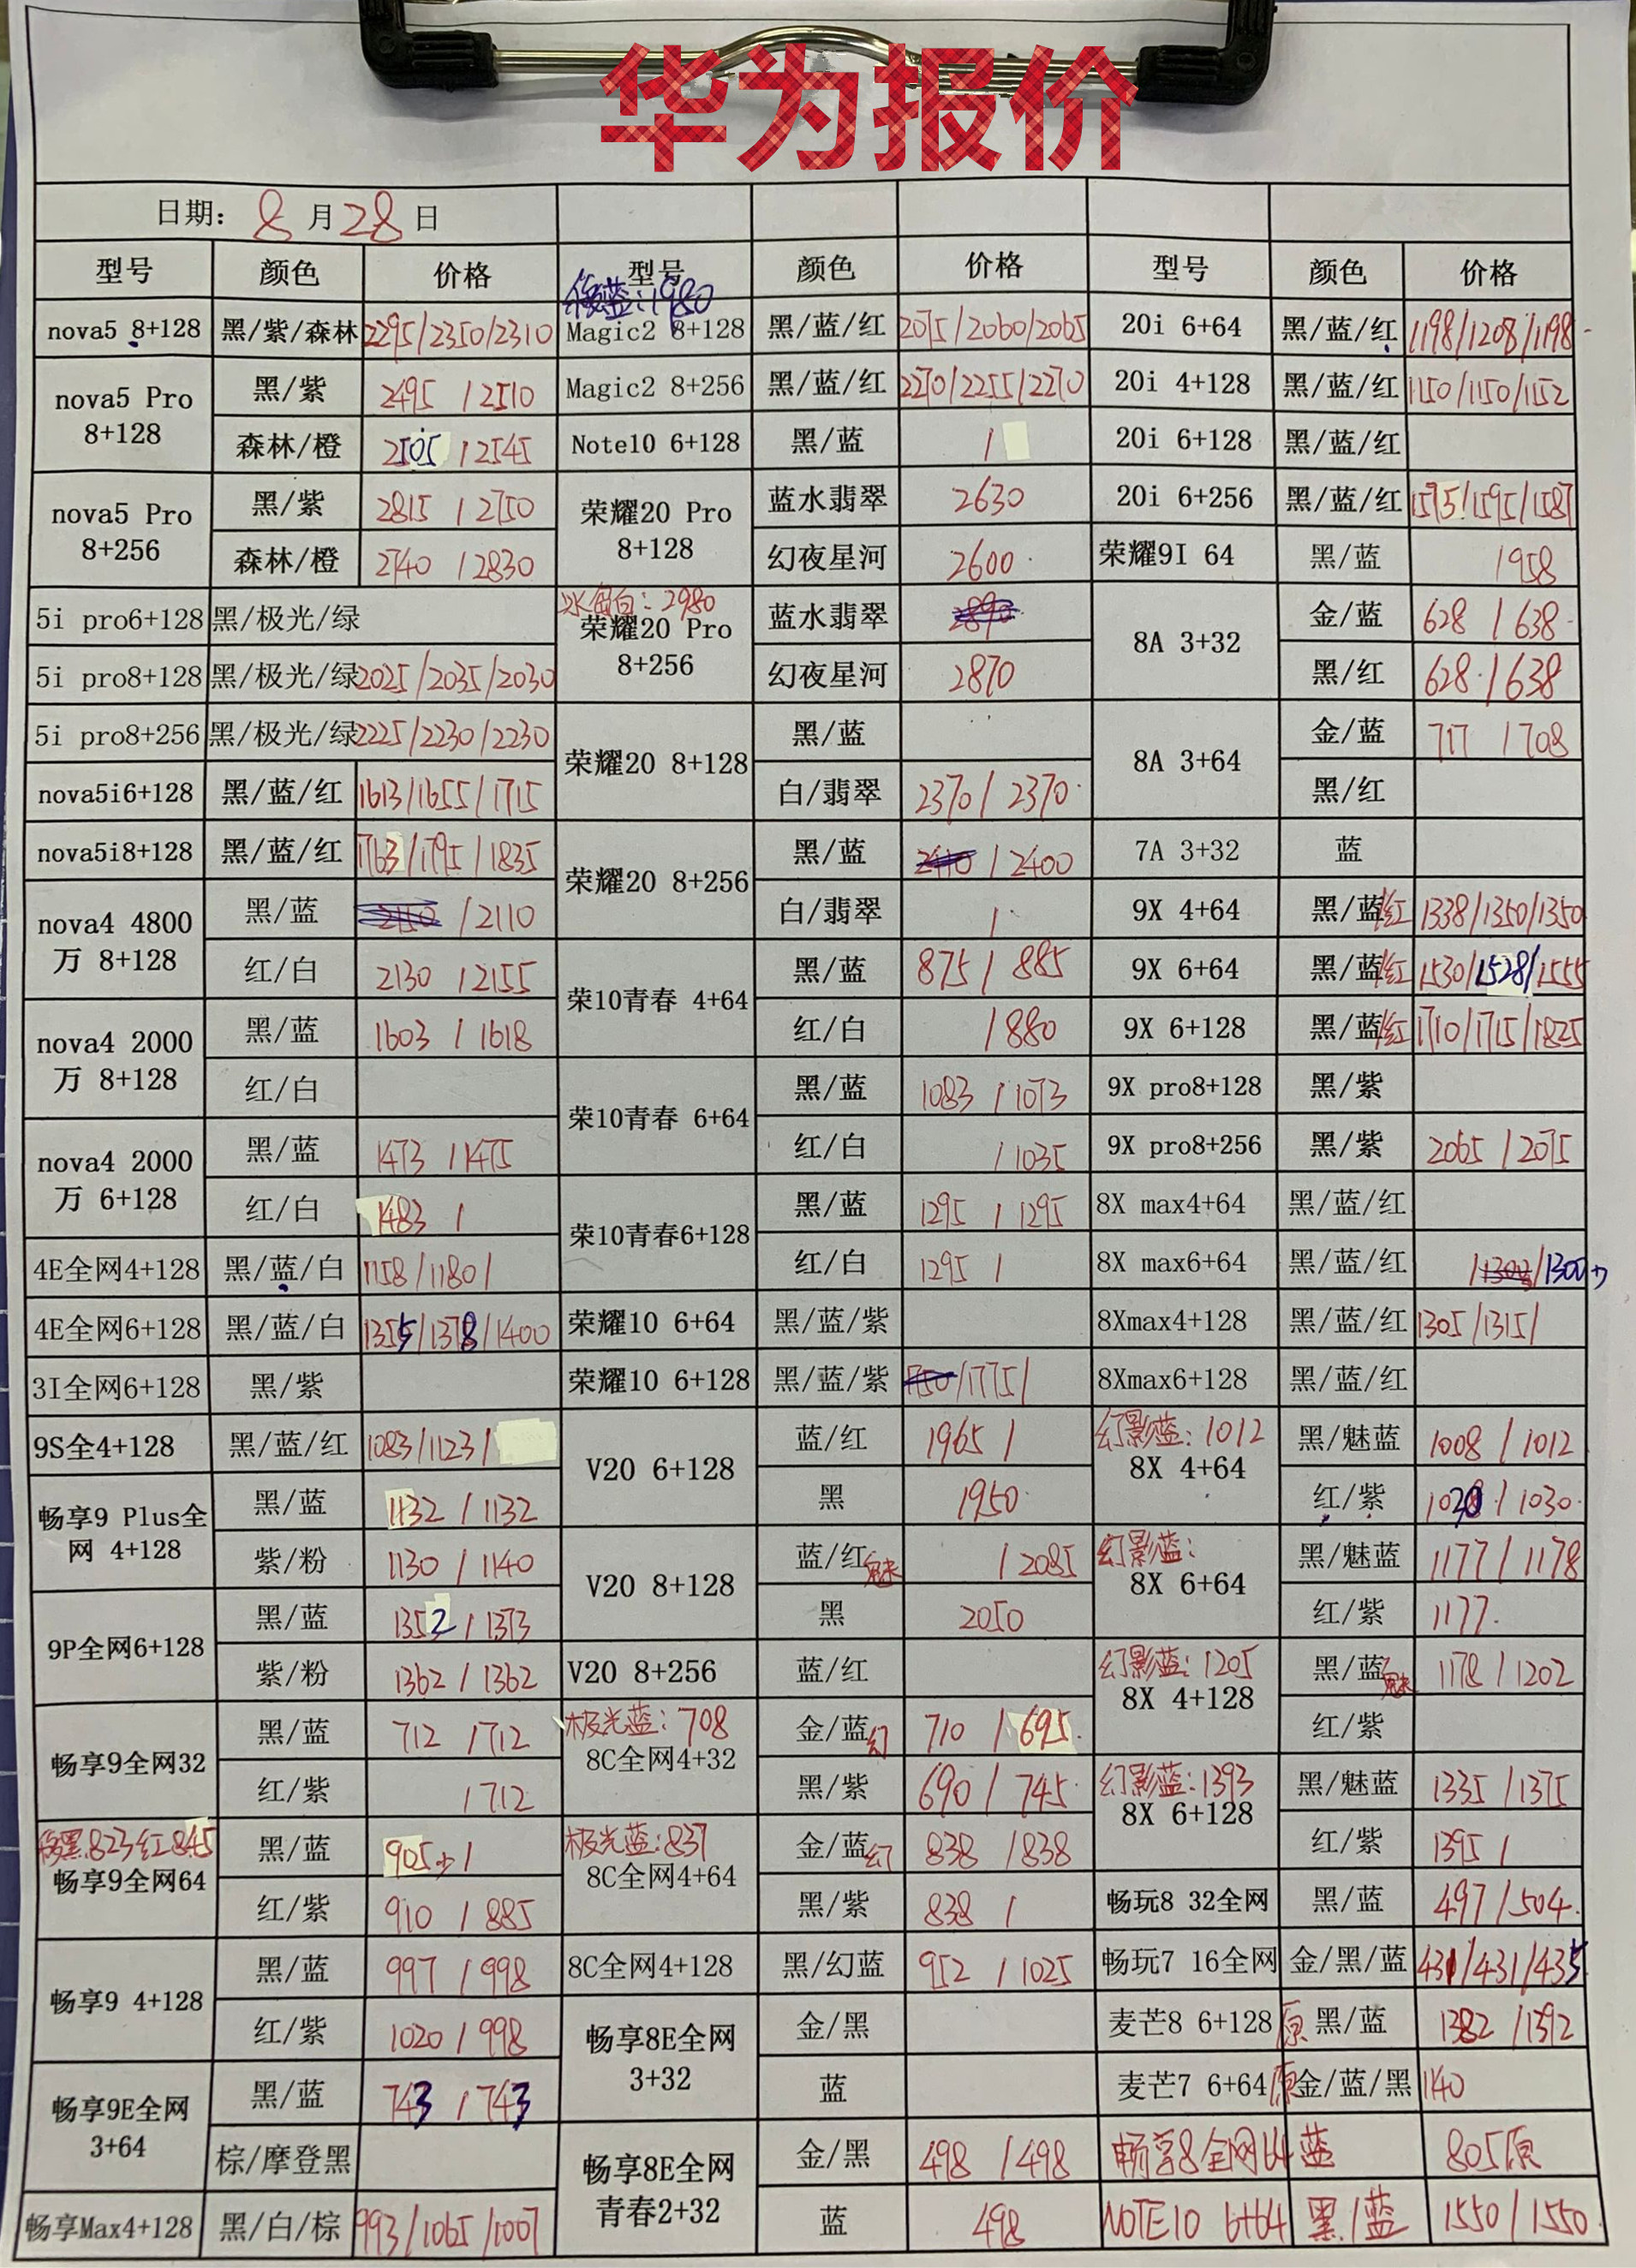 华为报价
日期: 8月28日
型号 颜色 价格 型号 颜色 价格 型号 颜色 价格
修蓝:1980
nova5 8+128 黑/紫/森林 2295/2350/2310 Magic2 8+128 黑/蓝/红 2075/2060/2065 20i 6+64 黑/蓝/红 1198/1208/1198
nova5 Pro 8+128 黑/紫 2495/2510 Magic2 8+256 黑/蓝/红 2270/2255/2270 20i 4+128 黑/蓝/红 1150/1150/1152
森林/橙 2505/2545 Note10 6+128 黑/蓝 / 20i 6+128 黑/蓝/红
nova5 Pro 8+256 黑/紫 2815/2750 荣耀20 Pro 8+128 蓝水翡翠 2630 20i 6+256 黑/蓝/红 1595/1595/1587
森林/橙 2740/2830 幻夜星河 2600 荣耀9I 64 黑/蓝 /958
5i pro6+128 黑/极光/绿 冰岛白:2980 荣耀20 Pro 8+256 蓝水翡翠 8A 3+32 金/蓝 628/638
5i pro8+128 黑/极光/绿 2025/2035/2030 幻夜星河 2870 黑/红 628/638
5i pro8+256 黑/极光/绿 2225/2230/2230 荣耀20 8+128 黑/蓝 8A 3+64 金/蓝 717/708
nova5i6+128 黑/蓝/红 1613/1655/1715 白/翡翠 2370/2370 黑/红
nova5i8+128 黑/蓝/红 1763/1795/1835 荣耀20 8+256 黑/蓝 /2400 7A 3+32 蓝
nova4 4800万 8+128 黑/蓝 /2110 白/翡翠 / 9X 4+64 黑/蓝/红 1338/1350/1350
红/白 2130/2155 荣10青春 4+64 黑/蓝 875/885 9X 6+64 黑/蓝/红 1530/1528/1555
nova4 2000万 8+128 黑/蓝 1603/1618 红/白 /880 9X 6+128 黑/蓝/红 1710/1715/1825
红/白 荣10青春 6+64 黑/蓝 1083/1073 9X pro8+128 黑/紫
nova4 2000万 6+128 黑/蓝 1473/1475 红/白 /1035 9X pro8+256 黑/紫 2065/2075
红/白 1483/ 荣10青春6+128 黑/蓝 1295/1295 8X max4+64 黑/蓝/红
4E全网4+128 黑/蓝/白 1158/1180/ 红/白 1295/ 8X max6+64 黑/蓝/红 /1300
4E全网6+128 黑/蓝/白 1355/1378/1400 荣耀10 6+64 黑/蓝/紫 8Xmax4+128 黑/蓝/红 1305/1315/
3I全网6+128 黑/紫 荣耀10 6+128 黑/蓝/紫 /1775/ 8Xmax6+128 黑/蓝/红
9S全4+128 黑/蓝/红 1083/1123/ V20 6+128 蓝/红 1965/ 幻影蓝:1012 8X 4+64 黑/魅蓝 1008/1012
畅享9 Plus全网 4+128 黑/蓝 1132/1132 黑 1950 红/紫 1020/1030
紫/粉 1130/1140 V20 8+128 蓝/红魅 /2085 幻影蓝: 8X 6+64 黑/魅蓝 1177/1178
9P全网6+128 黑/蓝 1352/1373 黑 2050 红/紫 1177
紫/粉 1362/1362 V20 8+256 蓝/红 幻影蓝:1205 8X 4+128 黑/蓝魅 1178/1202
畅享9全网32 黑/蓝 712/712 极光蓝:708 8C全网4+32 金/蓝幻 710/695 红/紫
红/紫 /712 黑/紫 690/745 幻影蓝:1393 8X 6+128 黑/魅蓝 1335/1375
修黑823红845 畅享9全网64 黑/蓝 905/ 极光蓝:837 8C全网4+64 金/蓝幻 838/838 红/紫 1395/
红/紫 910/885 黑/紫 838/ 畅玩8 32全网 黑/蓝 497/504
畅享9 4+128 黑/蓝 997/998 8C全网4+128 黑/幻蓝 952/1025 畅玩7 16全网 金/黑/蓝 431/431/435
红/紫 1020/998 畅享8E全网 3+32 金/黑 麦芒8 6+128 原 黑/蓝 1382/1392
畅享9E全网 3+64 黑/蓝 743/743 蓝 麦芒7 6+64 原 金/蓝/黑 1140
棕/摩登黑 畅享8E全网 青春2+32 金/黑 498/498 畅享8全网64 蓝 805原
畅享Max4+128 黑/白/棕 993/1065/1007 蓝 498 NOTE10 6+64 黑/蓝 1550/1550